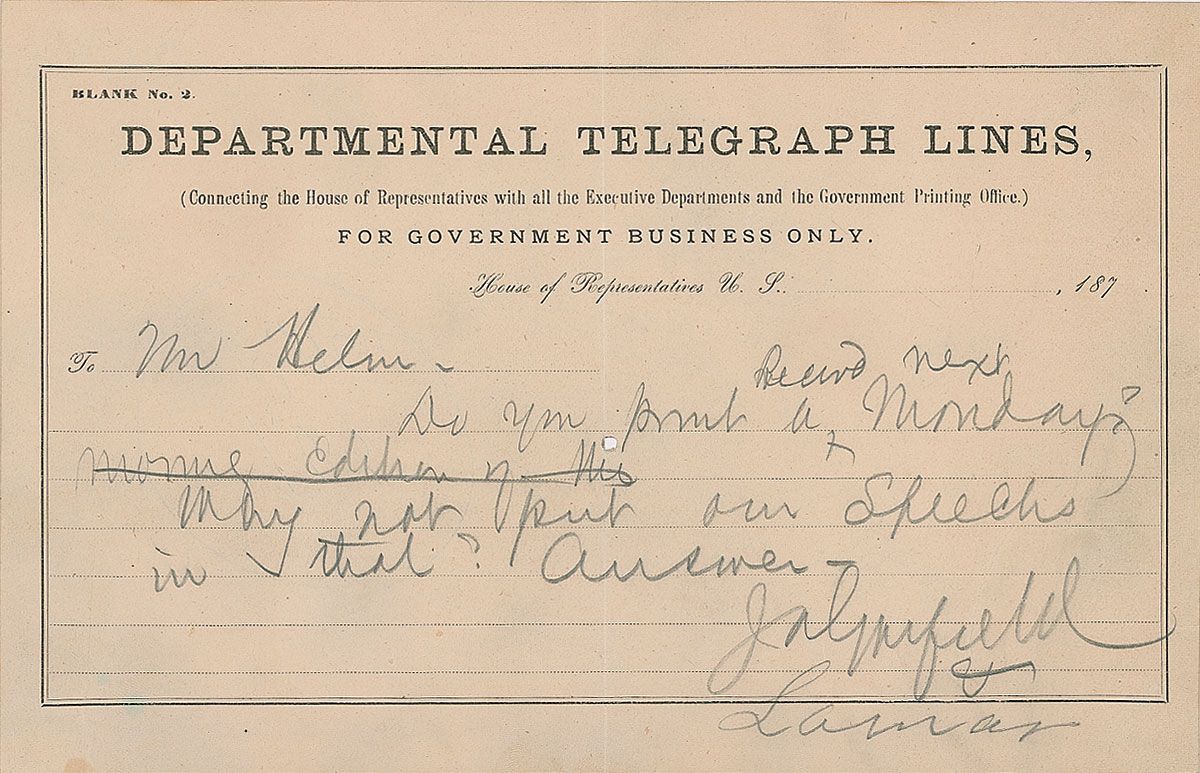 BLANK No. 2.
DEPARTMENTAL TELEGRAPH LINES,
(Connecting the House of Representatives with all the Executive Departments and the Government Printing Office.)
FOR GOVERNMENT BUSINESS ONLY.
House of Representatives U. S. , 187
To Mr Helm -
Record next
Do you print a Monday?
morning Edition of this
Why not put our Speechs
in that? Answer -
J A Garfield
&
Lamar